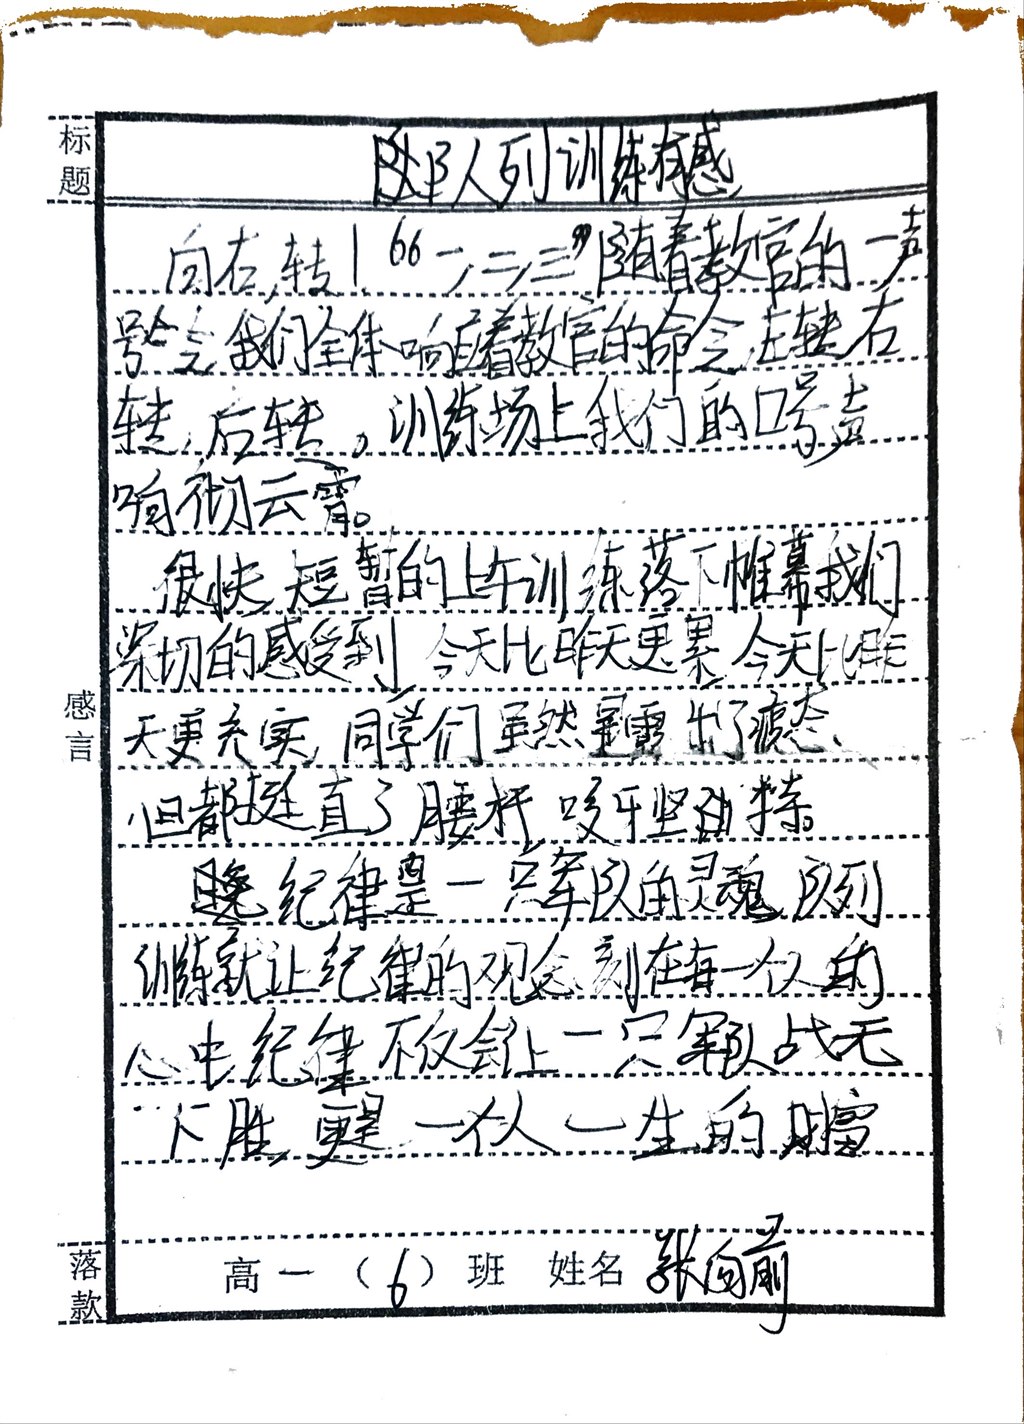 标题
队列训练有感
向右,转！“一,二,三”随着教官的一声
号令,我们全体响着教官的命令,左转,右
转,后转。训练场上我们的口号声
响彻云霄。
很快,短暂的上午训练落下帷幕我们
深切的感受到,今天比昨天更累,今天比昨
天更充实,同学们虽然暴露出了疲态,
但都挺直了腰杆,咬牙坚持。
纪律是一只军队的灵魂,队列
训练就让纪律的观念刻在每一个人的
心中纪律不仅会让一只军队战无
不胜,更是一个人一生的财富
感言
落款
高一（6）班 姓名 张向前